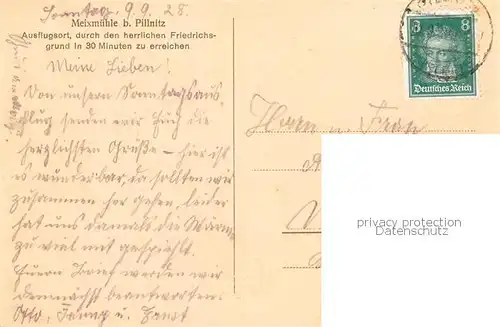 Sonntag, 9.9.28.
Meixmühle b. Pillnitz
Ausflugsort, durch den herrlichen Friedrichs-
grund in 30 Minuten zu erreichen
Meine Lieben!
Von unserm Sonntagsaus-
flug senden wir Euch die
herzlichsten Grüße – hier ist
es wunderbar, da sollten wir
zusammen her gehen, leider
hat uns damals die Wärme
zu viel mit gespielt.
Euren Brief werden wir
demnächst beantworten.
Otto, u. Horst
8 8
Deutsches Reich
Herrn u. Frau
privacy protection
Datenschutz